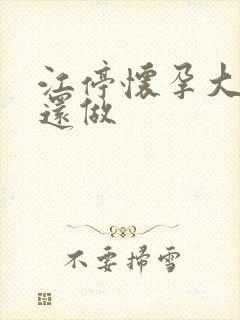 江停懷孕大
還做
不要掃雪